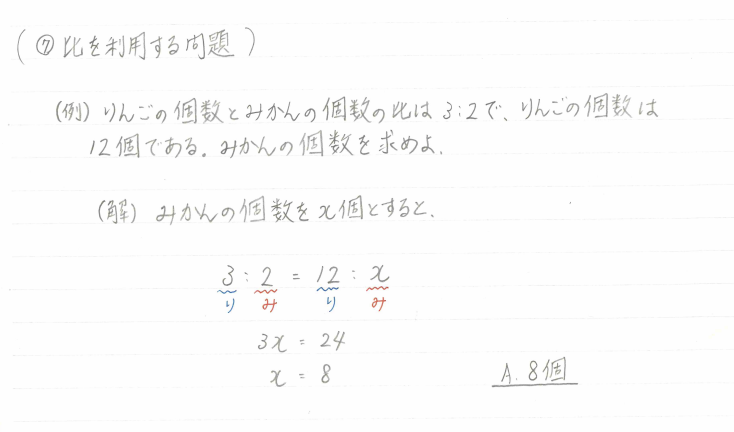 (⑦ 比を利用する問題)
(例) りんごの個数とみかんの個数の比は 3:2で、りんごの個数は
12個である。みかんの個数を求めよ.
(解) みかんの個数をx個とすると、
3 : 2 = 12 : x
り み り み
3x = 24
x = 8
A. 8個